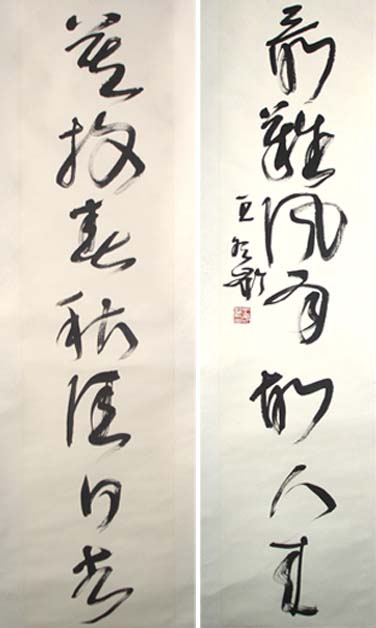 最難風雨故人來
王冬齡
莫放春秋佳日過